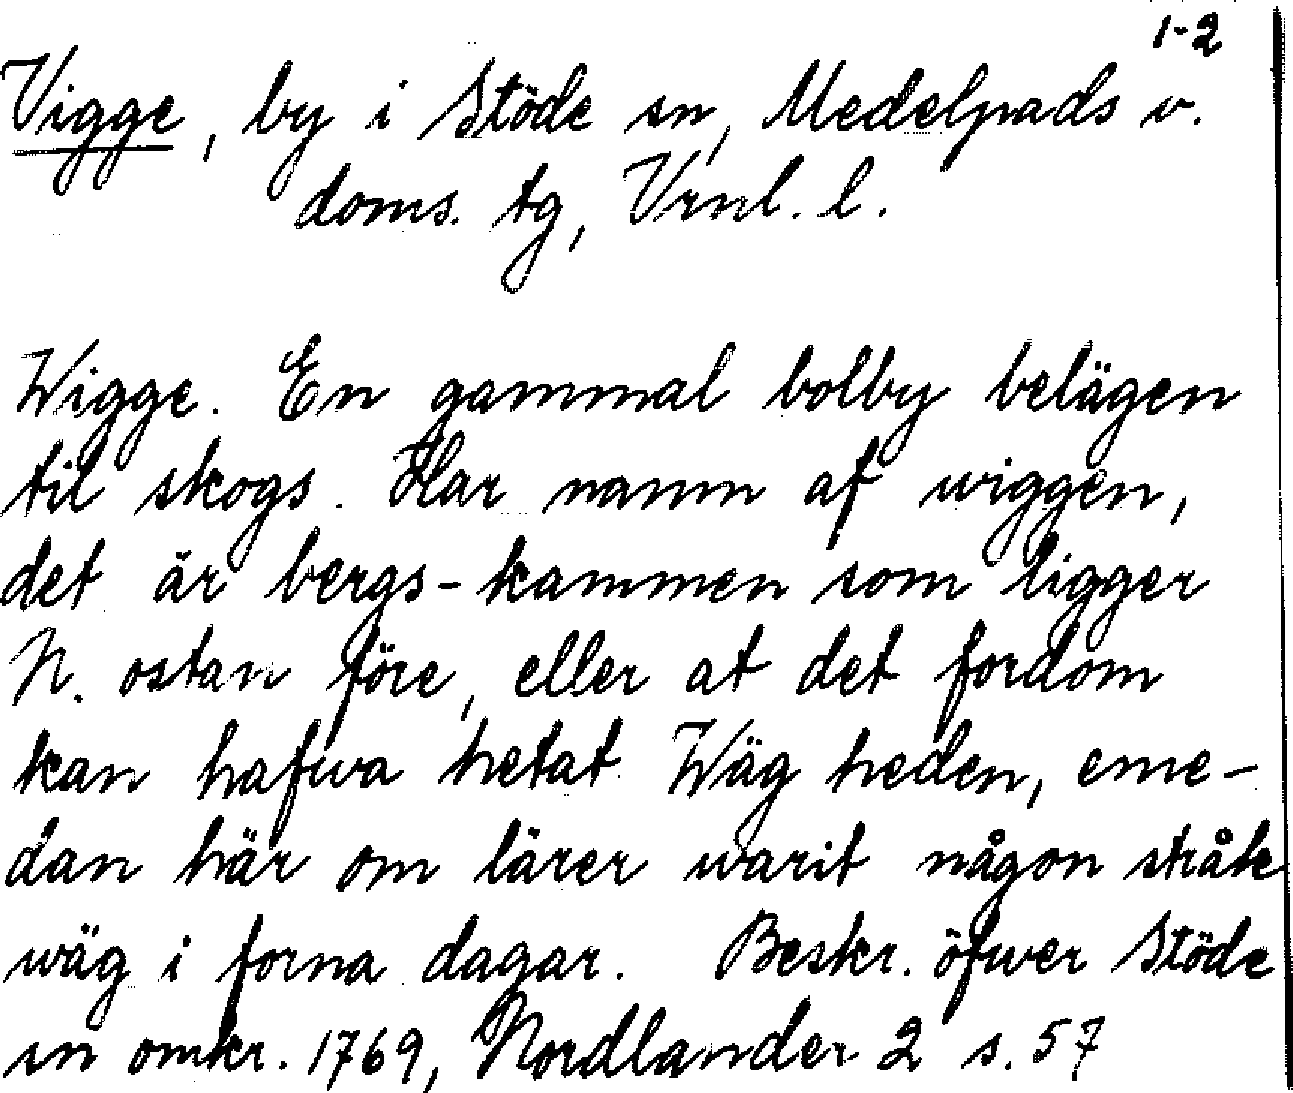 1-2
Vigge, by i Stöde sn, Medelpads v.
doms. tg, Vrnl. l.
Wigge. En gammal bolby belägen
til skogs. Har namn af wiggen,
det är bergs-kammen som ligger
N. ostan före, eller at det fordom
kan hafwa hetat Wäg heden, eme-
dan här om lärer warit någon stråk
wäg i forna dagar. Beskr. öfwer Stöde
sn omkr. 1769, Nordlander 2 s. 57